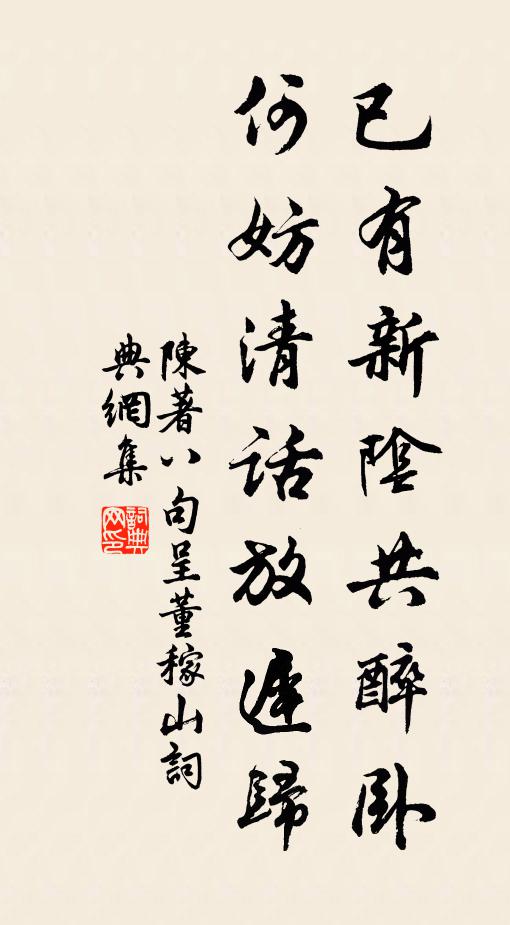 已有新陰共醉卧
何妨清話放遲歸
陳著八句呈董稼山詞
典網集
詞典網印